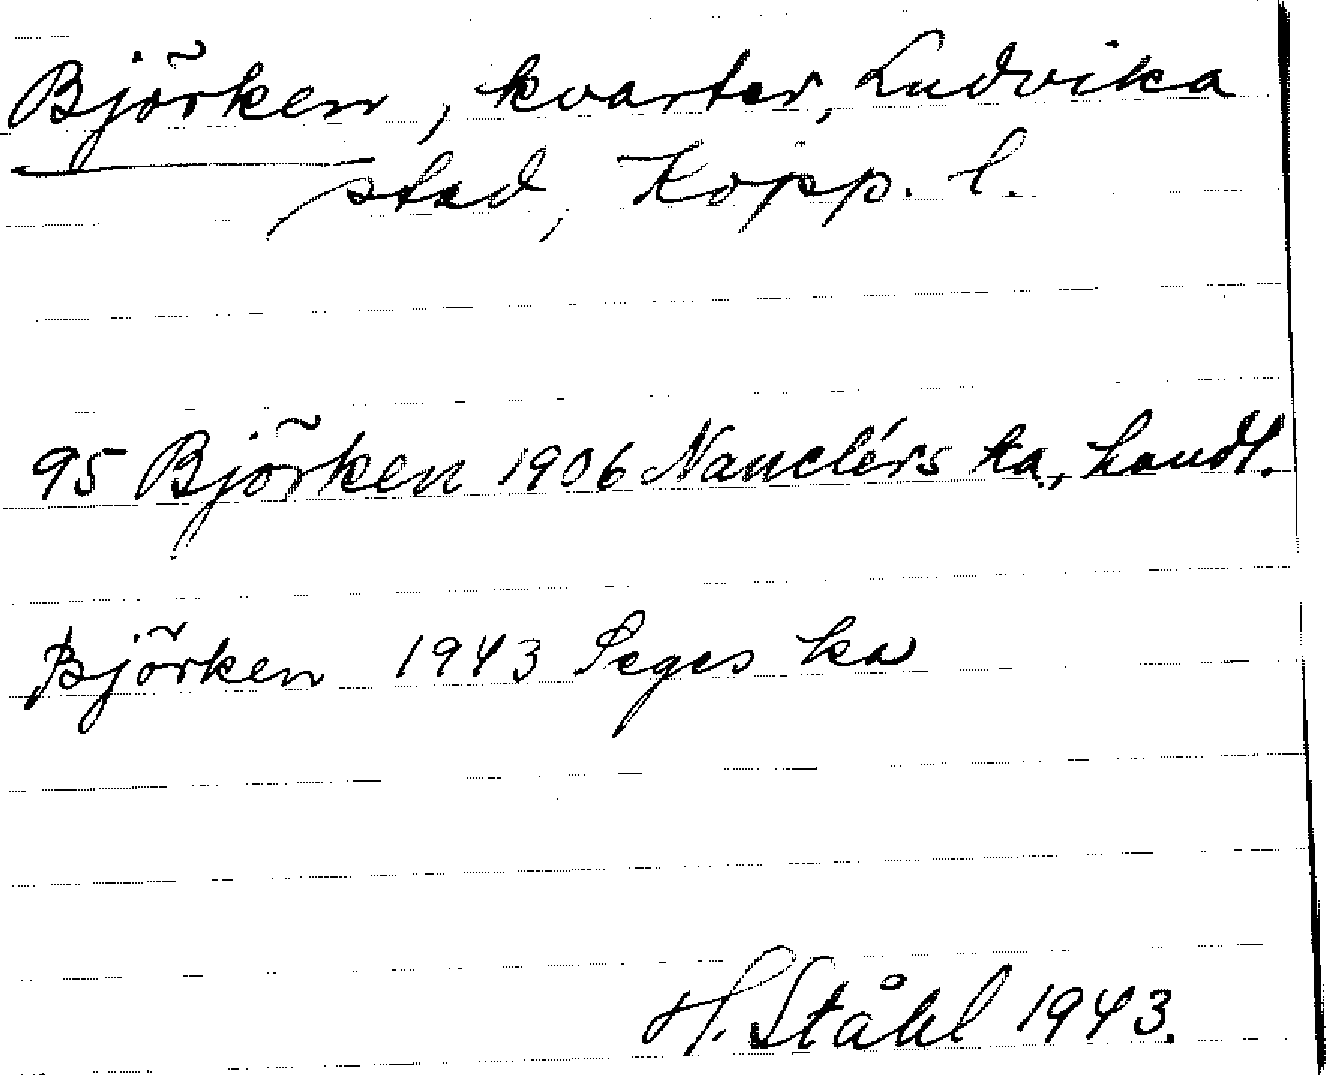 Björken, kvarter, Ludvika
stad, Kopp. l.
95 Björken 1906 Nauclérs ka, handl.
Björken 1943 Seges ka
H. Ståhl 1943.